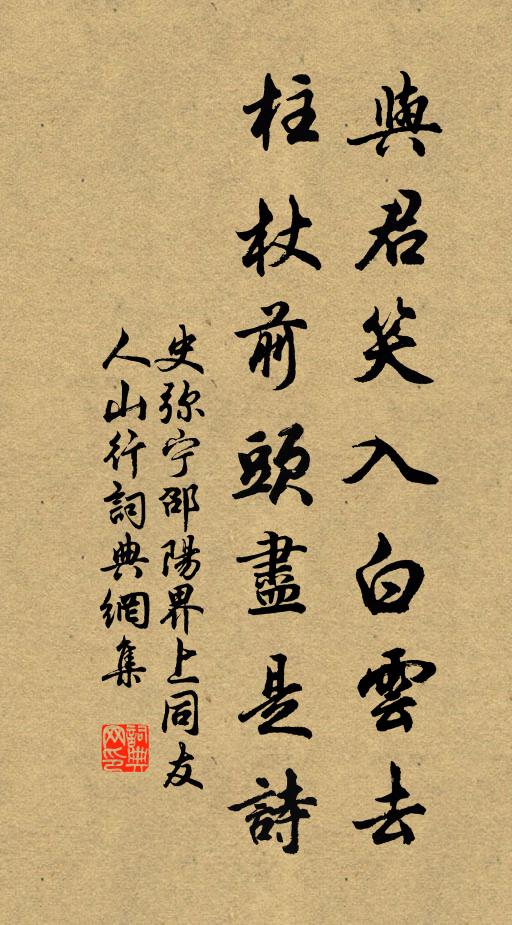 與君笑入白雲去
柱杖前頭盡是詩
史弥宁邵陽界上同友
人山行詞典網集
詞典
网印